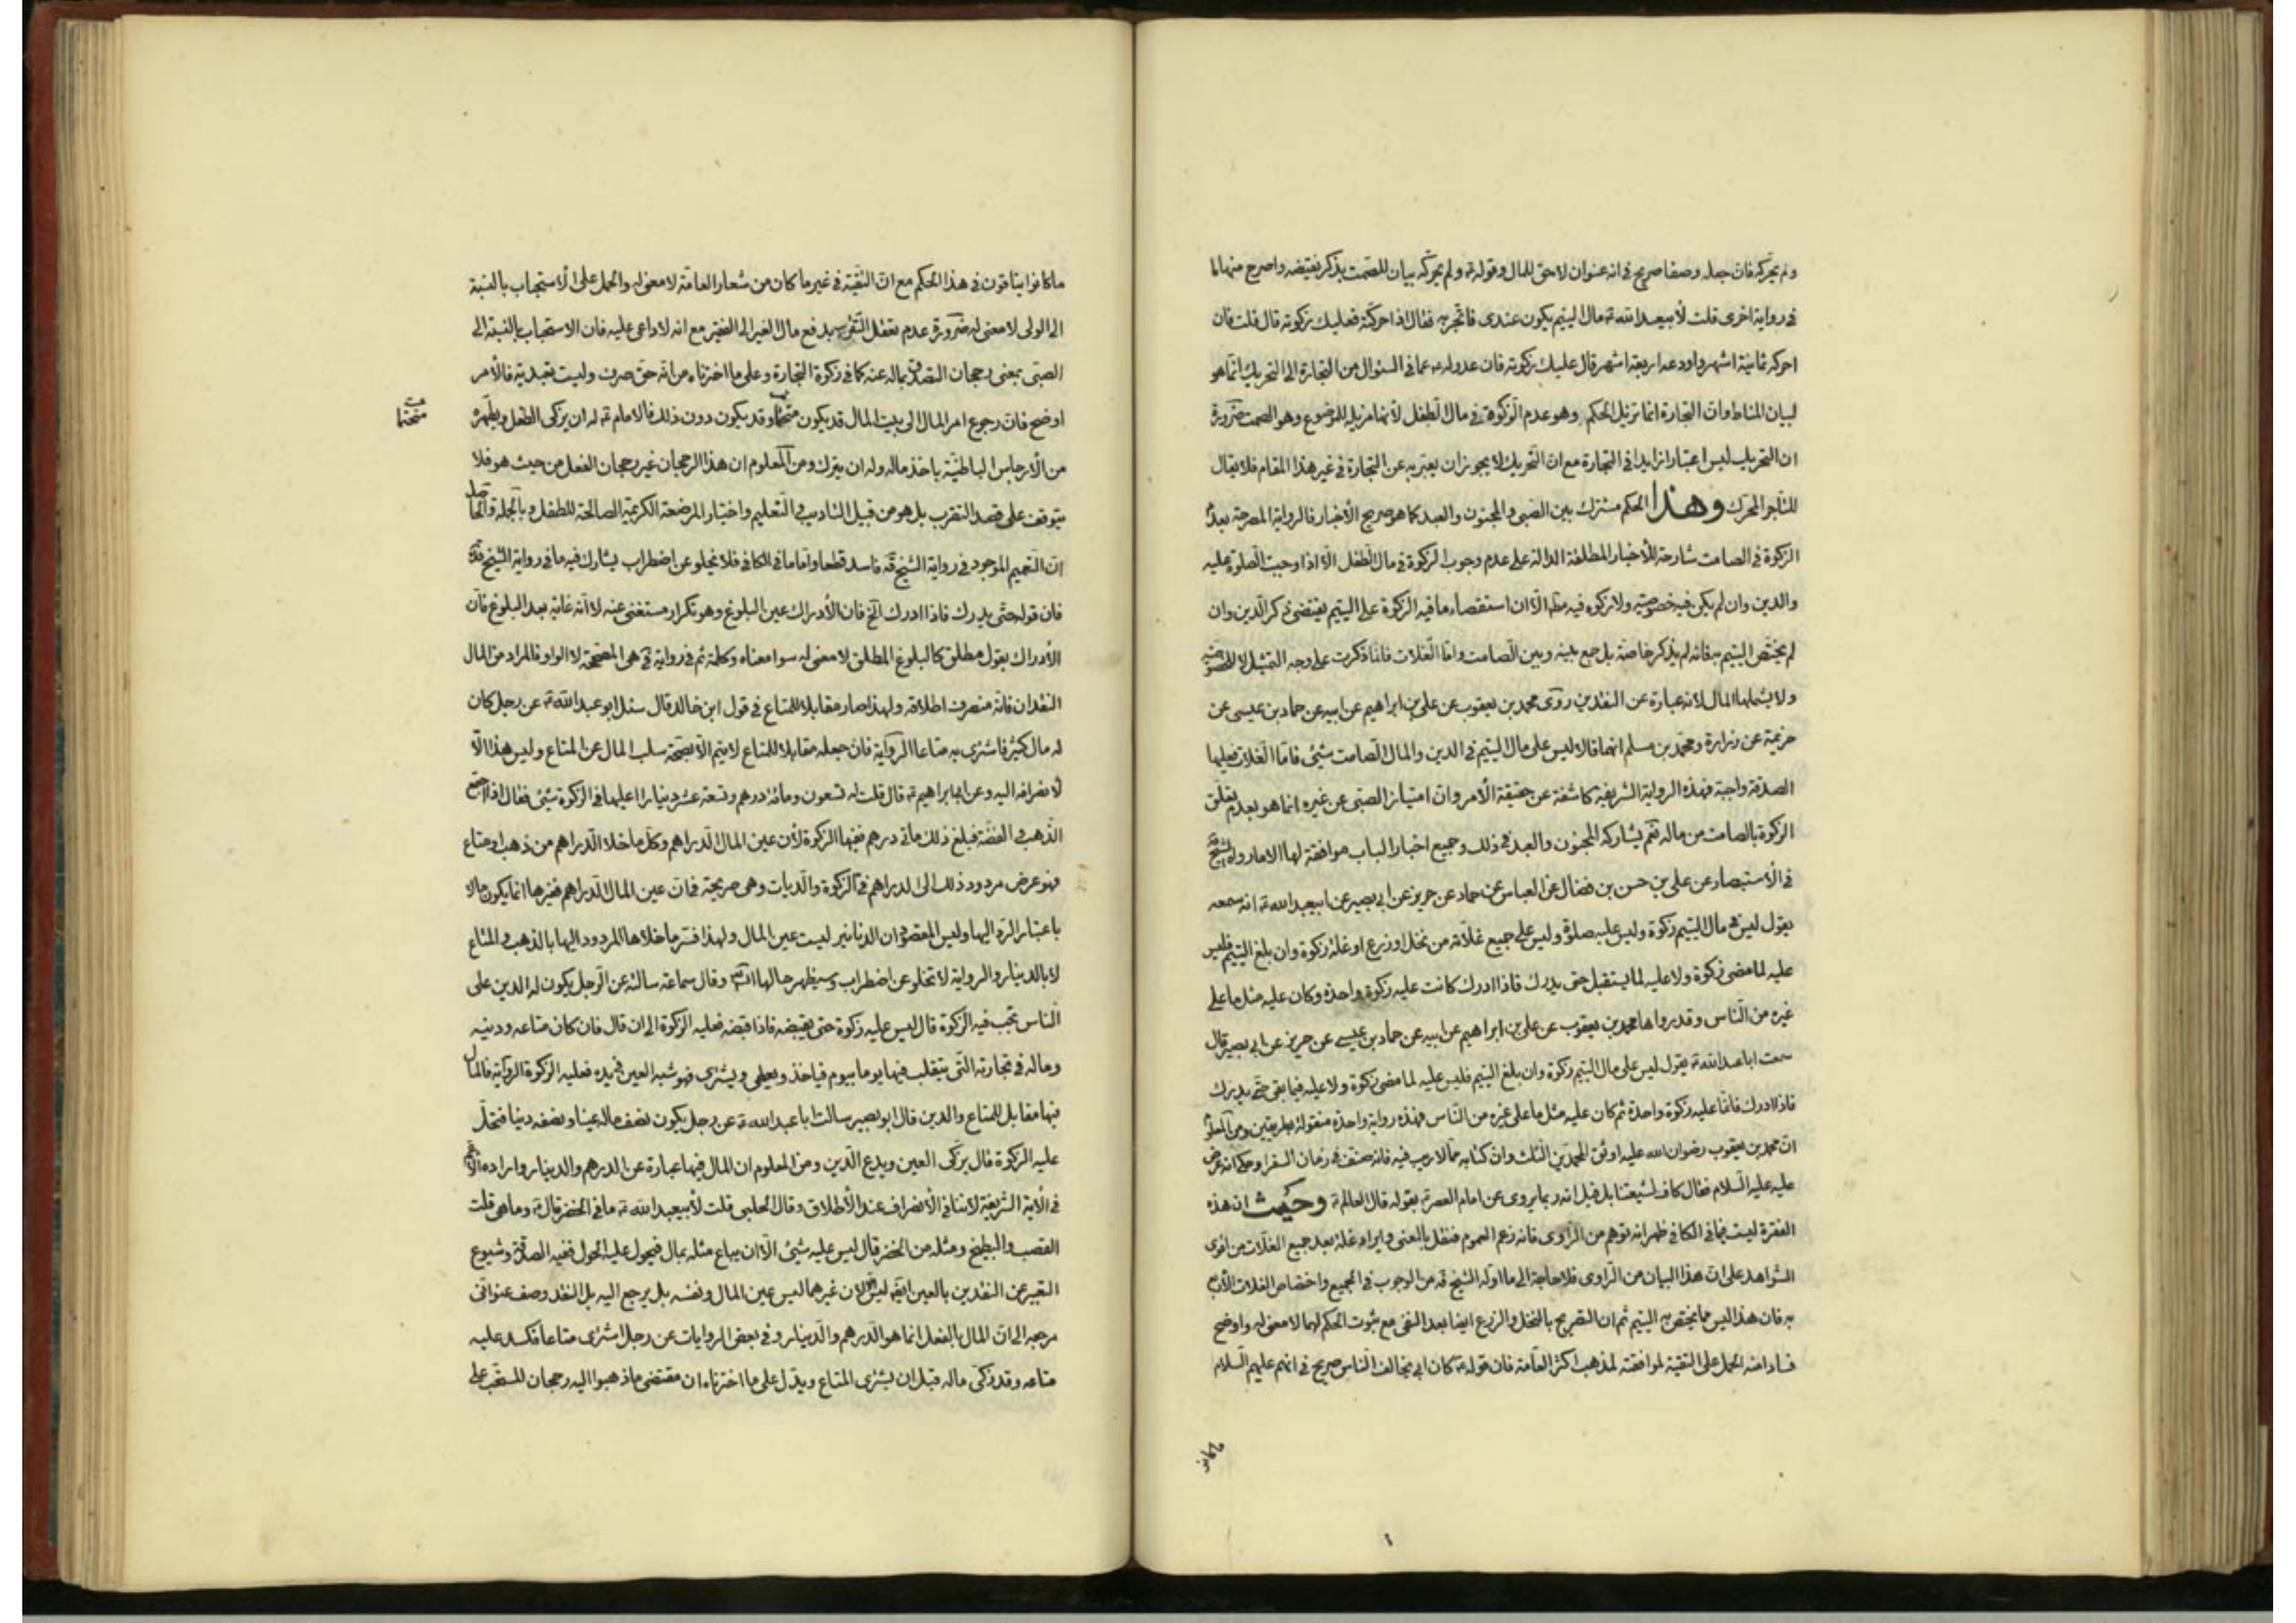 ولم يحركه فان جعله وصفا صريح في انه عنوان لاحق للمال وقوله ع ولم يحركه بيان للصمت بذكر نقيضه واصرح منهما ما
في رواية اخرى قلت لأبيعبدالله ع مال اليتيم يكون عندى فاتجر به فقال اذا حركته فعليك زكوته قال قلت فان
احركه ثمانية اشهر واودعه اربعة اشهر قال عليك زكوته فان عدوله ع عما في السئوال من التجارة الى التحريك انما هو
لبيان المناط وان التجارة انما تزيل الحكم وهو عدم الزكوة في مال الطفل لأنها مزيلة للموضوع وهو الصمت ضرورة
ان التحريك ليس اعتبارا زايدا في التجارة مع ان التحريك لا يجوز ان يعبر به عن التجارة في غير هذا المقام فلا يقال
للتاجر المحرك وهذا الحكم مشترك بين الصبى والمجنون والعبد كما هو صريح الأخبار فالرواية المصرحة بعدم
الزكوة في الصامت شارحة للأخبار المطلقة الدالة على عدم وجوب الزكوة في مال الطفل الا اذا وجبت الصلوة عليه
والدين وان لم يكن فيه خصوصية ولا زكوة فيه مطلقا الا ان استقصاء ما فيه الزكوة على اليتيم يقتضى ذكر الدين وان
لم يختص اليتيم به فانه لم يذكر خاصة بل جمع بينه وبين الصامت واما الغلات فانما ذكرت على وجه التمثيل لا الخصوصية
ولا يشملها المال لأنه عبارة عن النقدين روى محمد بن يعقوب عن على بن ابراهيم عن ابيه عن حماد بن عيسى عن
حريز عن زرارة ومحمد بن مسلم انهما قالا ليس على مال اليتيم في الدين والمال الصامت شيئ فاما الغلات فعليها
الصدقة واجبة فهذه الرواية الشريفة كاشفة عن حقيقة الأمر وان امتياز الصبى عن غيره انما هو بعدم تعلق
الزكوة بالصامت من ماله نعم يشاركه المجنون والعبد في ذلك وجميع اخبار الباب موافقة لها الا ما رواه الشيخ
في الأستبصار عن على بن حسن بن فضال عن العباس عن حماد عن حريز عن ابى بصير عن ابيعبدالله ع انه سمعه
يقول ليس في مال اليتيم زكوة وليس عليه صلوة وليس على جميع غلاته من نخل او زرع او غلة زكوة وان بلغ اليتيم فليس
عليه لما مضى زكوة ولا عليه لما يستقبل حتى يدرك فاذا ادرك كانت عليه زكوة واحدة وكان عليه مثل ما على
غيره من الناس وقد رواها محمد بن يعقوب عن على بن ابراهيم عن ابيه عن حماد بن عيسى عن حريز عن ابى بصير قال
سمعت ابا عبدالله ع يقول ليس على مال اليتيم زكوة وان بلغ اليتيم فليس عليه لما مضى زكوة ولا عليه فيما بقى حتى يدرك
فاذا ادرك فانما عليه زكوة واحدة ثم كان عليه مثل ما على غيره من الناس فهذه رواية واحدة منقولة بطريقين ومن المعلوم
ان محمد بن يعقوب رضوان الله عليه اوثق المحمدين الثلث وان كتابه مما لا ريب فيه فانه صنف في زمان السفراء وحكى انه عرض
عليه عليه السلام فقال كاف لشيعتنا بل قيل انه ربما يروى عن امام العصر ع بقوله قال العالم ع وحيث ان هذه
الفقرة ليست فيما في الكافي ظهر انه توهم من الراوى فانه زعم العموم فنقل بالمعنى وايراد غلة بعد جميع الغلات من اقوى
الشواهد على ان هذا البيان من الراوى فلا حاجة الى ما اوله الشيخ قه من الوجوب في الجميع واختصاص الغلات الأربع
به فان هذا ليس مما يختص به اليتيم ثم ان التصريح بالنخل والزرع ايضا بعد النفى مع ثبوت الحكم لهما لا معنى له واوضح
فسادا منه الحمل على التقية لموافقته لمذهب اكثر العامة فان قوله ع كان ابى يخالف الناس صريح في انهم عليهم السلام
ما كانوا
ما كانوا يتاقون في هذا الحكم مع ان التقية في غير ما كان من شعار العامة لا معنى له والحمل على الأستحباب بالنسبة
الى الولى لا معنى له ضرورة عدم تعقل التقرب بدفع مال الغير الى الفقير مع انه لا داعى عليه فان الاستحباب بالنسبة الى
الصبى بمعنى رجحان التصدق بماله عنه كما في زكوة التجارة وعلى ما اخترناه من انه حق صرف وليست تعبدية فالأمر
اوضح فان رجوع امر المال الى بيت المال قد يكون متحتما وقد يكون دون ذلك فالامام ع له ان يزكى الطفل ويطهره
من الأرجاس الباطنية باخذ ماله وله ان يترك ومن المعلوم ان هذا الرجحان غير رجحان الفعل من حيث هو فلا
يتوقف على قصد التقرب بل هو من قبيل التاديب والتعليم واختيار المرضعة الكريمة الصالحة للطفل وبالجملة والحاصل
ان التعميم الموجود في رواية الشيخ قه فاسد قطعا واما ما في الكافي فلا يخلو عن اضطراب يشارك فيه ما في رواية الشيخ قه
فان قوله حتى يدرك فاذا ادرك الخ فان الأدراك عين البلوغ وهو تكرار مستغنى عنه لا انه غاية بعد البلوغ فان
الأدراك بقول مطلق كالبلوغ المطلق لا معنى له سوا معناه وكلمة ثم في رواية في هى المصححة لا الواو فالمراد من المال
النقدان فانه منصرف اطلاقه ولهذا صار مقابلا للمتاع في قول ابن خالد قال سئل ابو عبدالله ع عن رجل كان
له مال كثير فاشترى به متاعا الرواية فان جعله مقابلا للمتاع لا يتم الا بصحة سلب المال عن المتاع وليس هذا الا
لأنصرافه اليه وعن ابا ابراهيم ع قال قلت له تسعون ومائة درهم وتسعة عشر دينارا اعليها في الزكوة شيئ فقال اذا اجتمع
الذهب والفضة فبلغ ذلك ماتى درهم ففيها الزكوة لأن عين المال الدراهم وكل ما خلا الدراهم من ذهب او متاع
فهو عرض مردود ذلك الى الدراهم في الزكوة والديات وهى صريحة فى ان عين المال الدراهم فغيرها انما يكون مالا
باعتبار الرد اليها وليس المقصود ان الدنانير ليست عين المال ولهذا فسر ما خلاها المردود اليها بالذهب والمتاع
لا بالدينار والرواية لا تخلو عن اضطراب وسيظهر حالها انشه وقال سماعة سالته عن الرجل يكون له الدين على
الناس تجب فيه الزكوة قال ليس عليه زكوة حتى يقبضه فاذا قبضه فعليه الزكوة الى ان قال فان كان متاعه ودينه
وماله في تجارته التى يتقلب فيها يوما بيوم فياخذ ويعطى ويشترى فهو شبه العين في يده فعليه الزكوة الرواية فالمال
فيها مقابل للمتاع والدين قال ابو بصير سالت ابا عبدالله ع عن رجل يكون نصف ماله عينا ونصفه دينا فتحل
عليه الزكوة قال يزكى العين ويدع الدين ومن المعلوم ان المال فيها عبارة عن الدرهم والدينار وارادة الأعم
في الأية الشريفة لا تنافى الأنصراف عند الأطلاق وقال الحلبى قلت لأبيعبدالله ع ما في الخضر قال ع وما هى قلت
القصب والبطيخ ومثله من الخضر قال ليس عليه شيئ الا ان يباع مثله بمال فيحول عليه الحول ففيه الصدقة وشيوع
التعبير عن النقدين بالعين ايضا ليس الا لان غيرهما ليس عين المال ونفسه بل يرجع اليه بل النقد وصف عنوانى
مرجعه الى ان المال بالفعل انما هو الدرهم والدينار وفي بعض الروايات عن رجل اشترى متاعا فكسد عليه
متاعه وقد زكى ماله قبل ان يشترى المتاع ويدل على ما اخترناه ان مقتضى ما ذهبوا اليه رجحان المستحب على
متحتما